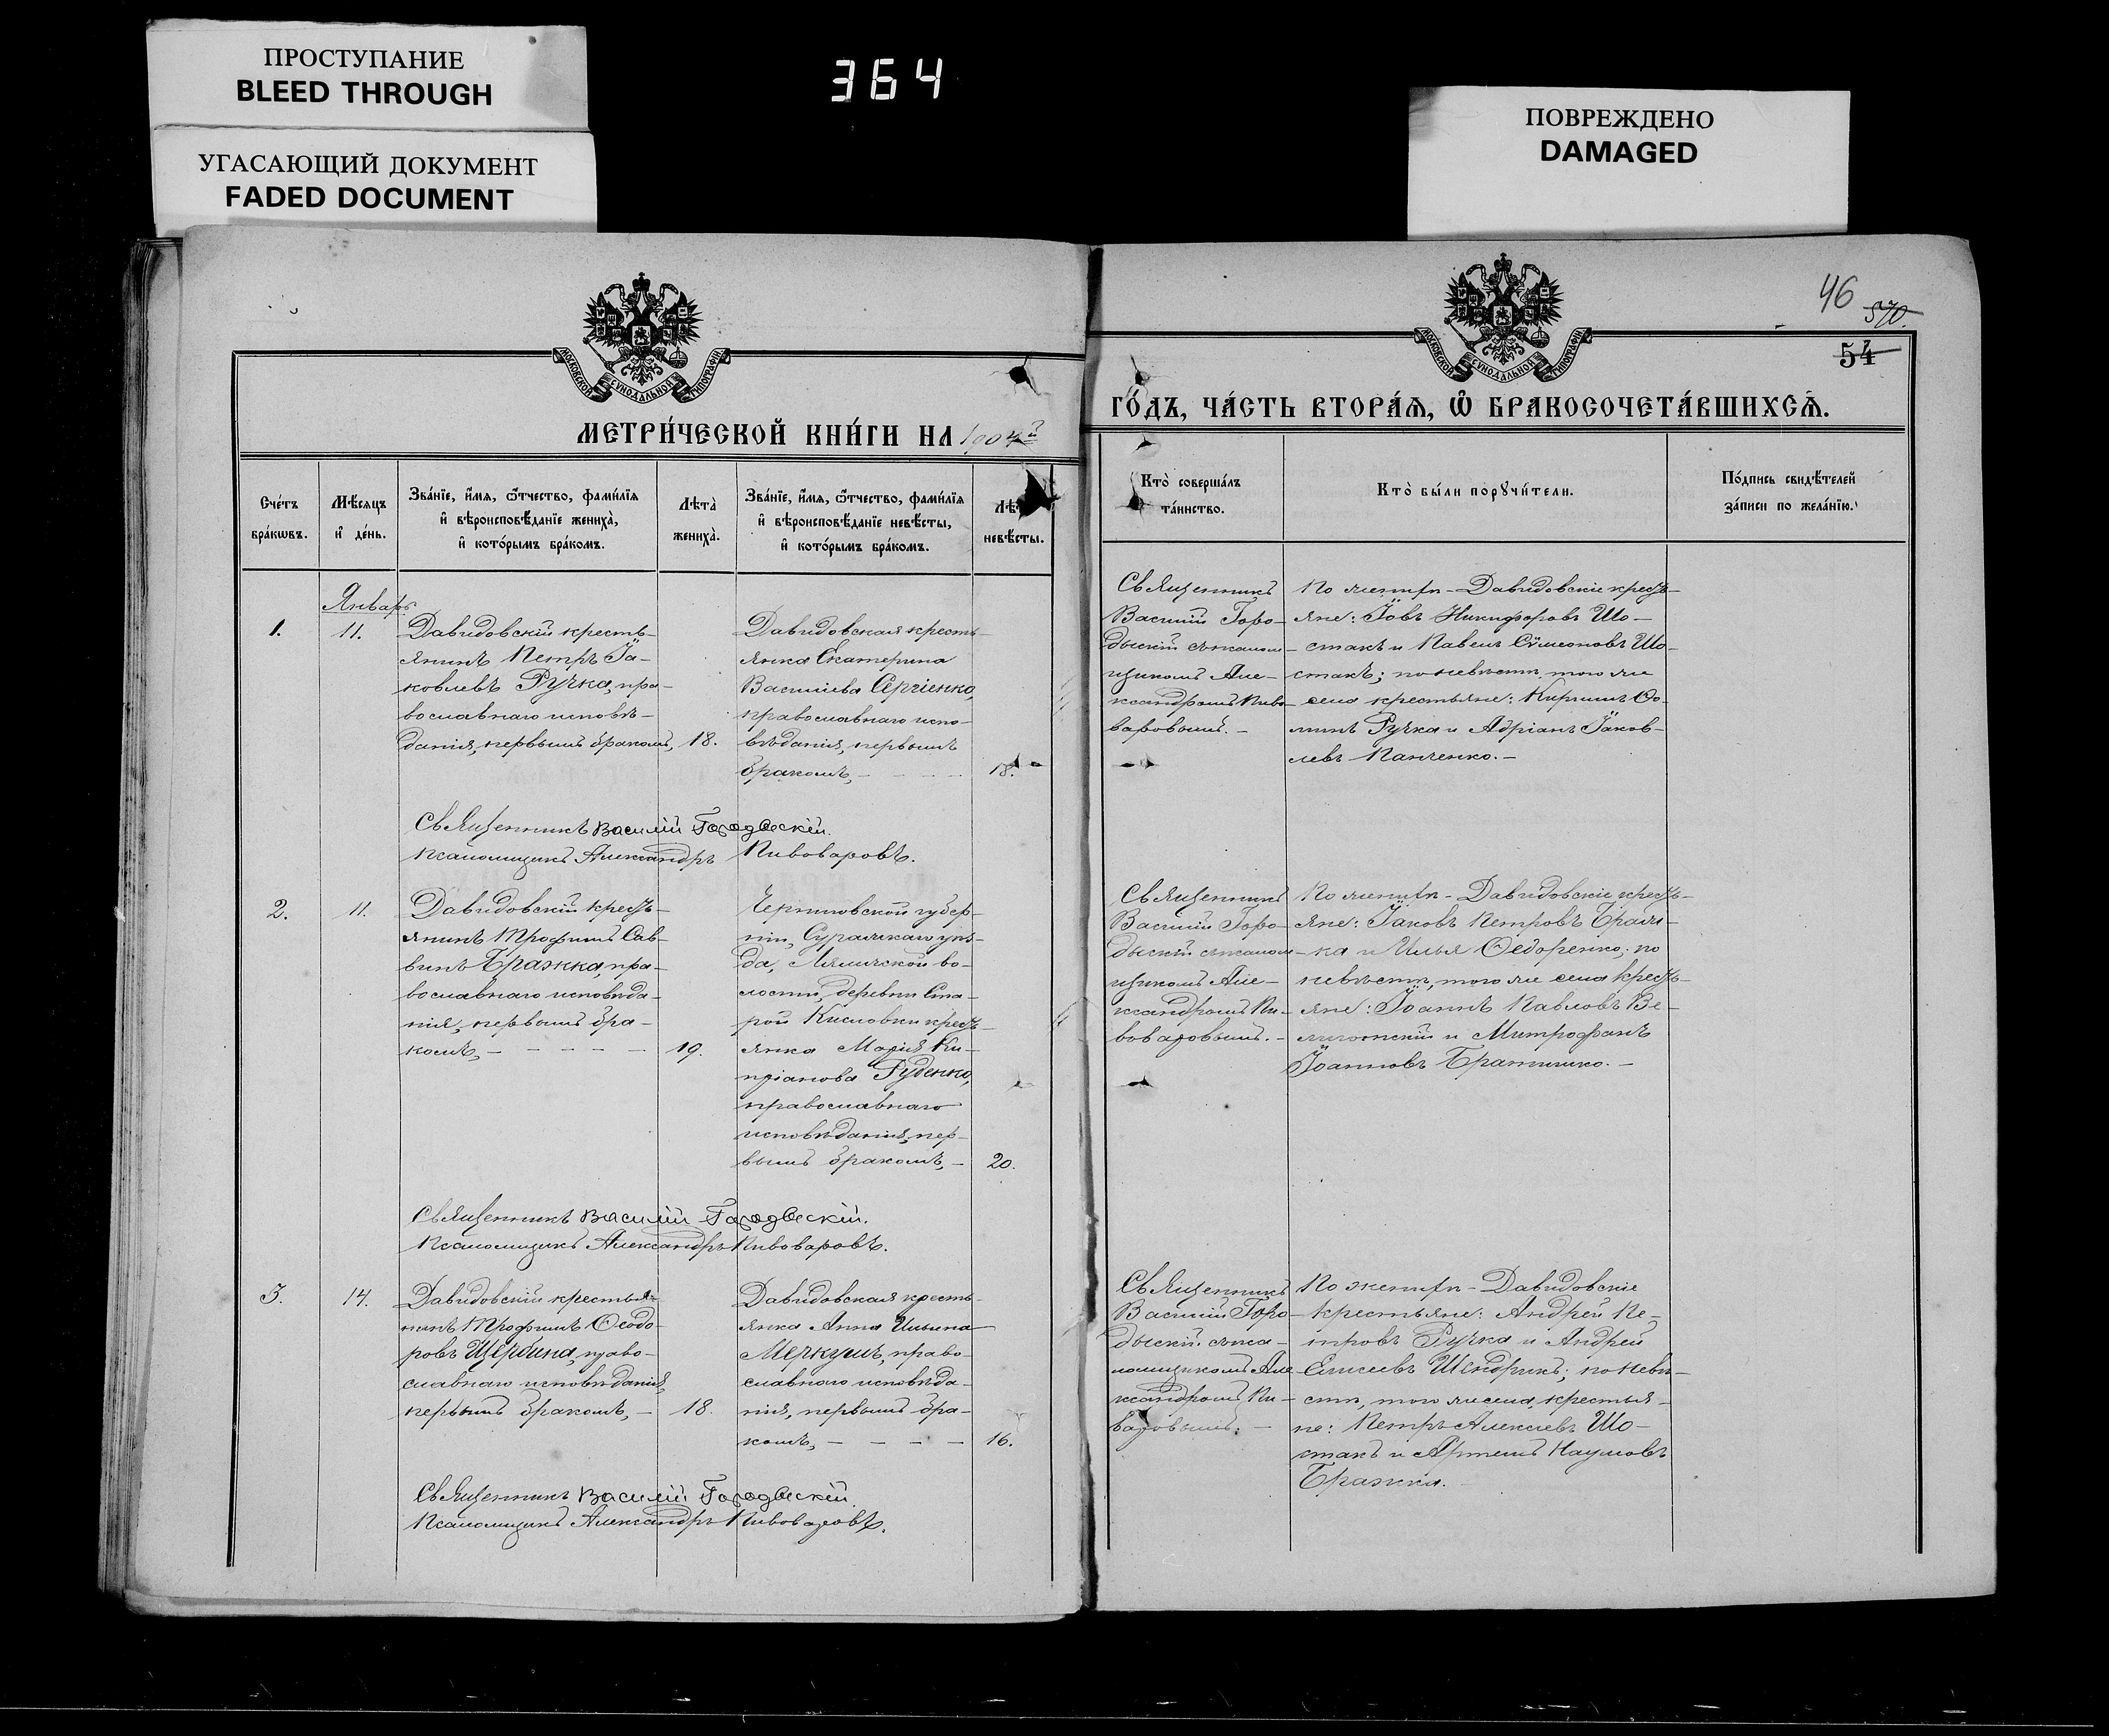 ПРОСТУПАНИЕ
BLEED THROUGH
УГАСАЮЩИЙ ДОКУМЕНТ
FADED DOCUMENT
364
ПОВРЕЖДЕНО
DAMAGED
46
570.
54
МОСКОВСКОЙ СѴНОДАЛЬНОЙ ТИПОГРАФІИ
МОСКОВСКОЙ СѴНОДАЛЬНОЙ ТИПОГРАФІИ
МЕТРИ́ЧЕСКОЙ КНИ́ГИ НА 1904й
ГО́ДЪ, ЧА́СТЬ ВТОРА́Ѧ, Ѽ БРАКОСОЧЕТА́ВШИХСѦ.
Сче́тъ
бра́кѡвъ.
Мѣ́сѧцъ
и҆ де́нь.
Зва́нїе, и҆́мѧ, ѻ҆́тчество, фами́лїѧ
и҆ вѣроисповѣ́данїе жениха̀,
и҆ кото́рымъ бра́комъ.
Лѣта̀
жениха̀.
Зва́нїе, и҆́мѧ, ѻ҆́тчество, фами́лїѧ
и҆ вѣроисповѣ́данїе невѣ́сты,
и҆ кото́рымъ бра́комъ.
Лѣ
невѣ́сты.
Кто̀ соверша́лъ
та́инство.
Кто̀ бы́ли порꙋчи́тели.
По́дпись свидѣ́телей
за́писи по жела́нїю.
Январь
1.
11.
Давидовскій кресть-
янинъ Петръ Іа-
ковлевъ Ручка, пра-
вославнаго исповѣ-
данія, первымъ бракомъ, 18.
Давидовская кресть-
янка Екатерина
Василіева Сергіенко,
православнаго испо-
вѣданія, первымъ
бракомъ, - - - - 18.
Священникъ
Василій Горо-
дыскій съ псалом-
щикомъ Але-
ксандромъ Пиво-
варовымъ. -
По женихѣ - Давидовскіе кресть-
яне: Іовъ Никифоровъ Шо-
стакъ и Павелъ Сѵмеоновъ Шо-
стакъ; по невѣстѣ, того же
села крестьяне: Кириллъ Ѳо-
минъ Ручка и Адріанъ Іаков-
левъ Панченко. -
Священникъ Василій Городыскій.
Псаломщикъ Александръ Пивоваровъ.
2.
11.
Давидовскій кресть-
янинъ Трофимъ Сав-
винъ Бражка, пра-
вославнаго исповѣда-
нія, первымъ бра-
комъ, - - - - - 19.
Черниговской губер-
ніи, Суражскаго уѣз-
да, Лялической во-
лости, деревни Ста-
рой Кисловки кресть-
янка Марія Ки-
пріанова Руденко,
православнаго
исповѣданія, пер-
вымъ бракомъ, - 20.
Священникъ
Василій Горо-
дыскій съ псалом-
щикомъ Але-
ксандромъ Пи-
воваровымъ. -
По женихѣ - Давидовскіе кресть-
яне: Іаковъ Петровъ Браж-
ка и Илья Ѳедоренко; по
невѣстѣ, того же села кресть-
яне: Іоаннъ Павловъ Ве-
Митрофанъ
Іоанновъ
Священникъ Василій Городыскій.
Псаломщикъ Александръ Пивоваровъ.
3.
14.
Давидовскій крестья-
нинъ Трофимъ Ѳеодо-
ровъ Щербина, право-
славнаго исповѣданія,
первымъ бракомъ, - 18.
Давидовская кресть-
янка Анна Ильина
Меркушъ, право-
славнаго исповѣда-
нія, первымъ бра-
комъ, - - - - 16.
Священникъ
Василій Горо-
дыскій съ пса-
ломщикомъ Але-
ксандромъ Пи-
варовымъ. -
По женихѣ - Давидовскіе
крестьяне: Андрей Пе-
тровъ Ручка и Андрей
Елисеевъ Шендрикъ; по невѣ-
стѣ, того же села, крестья-
не: Петръ Алексіевъ Шо-
стакъ и Артемъ Наумовъ
Бражка.
Священникъ Василій Городыскій
Псаломщикъ Александръ Пивоваровъ.